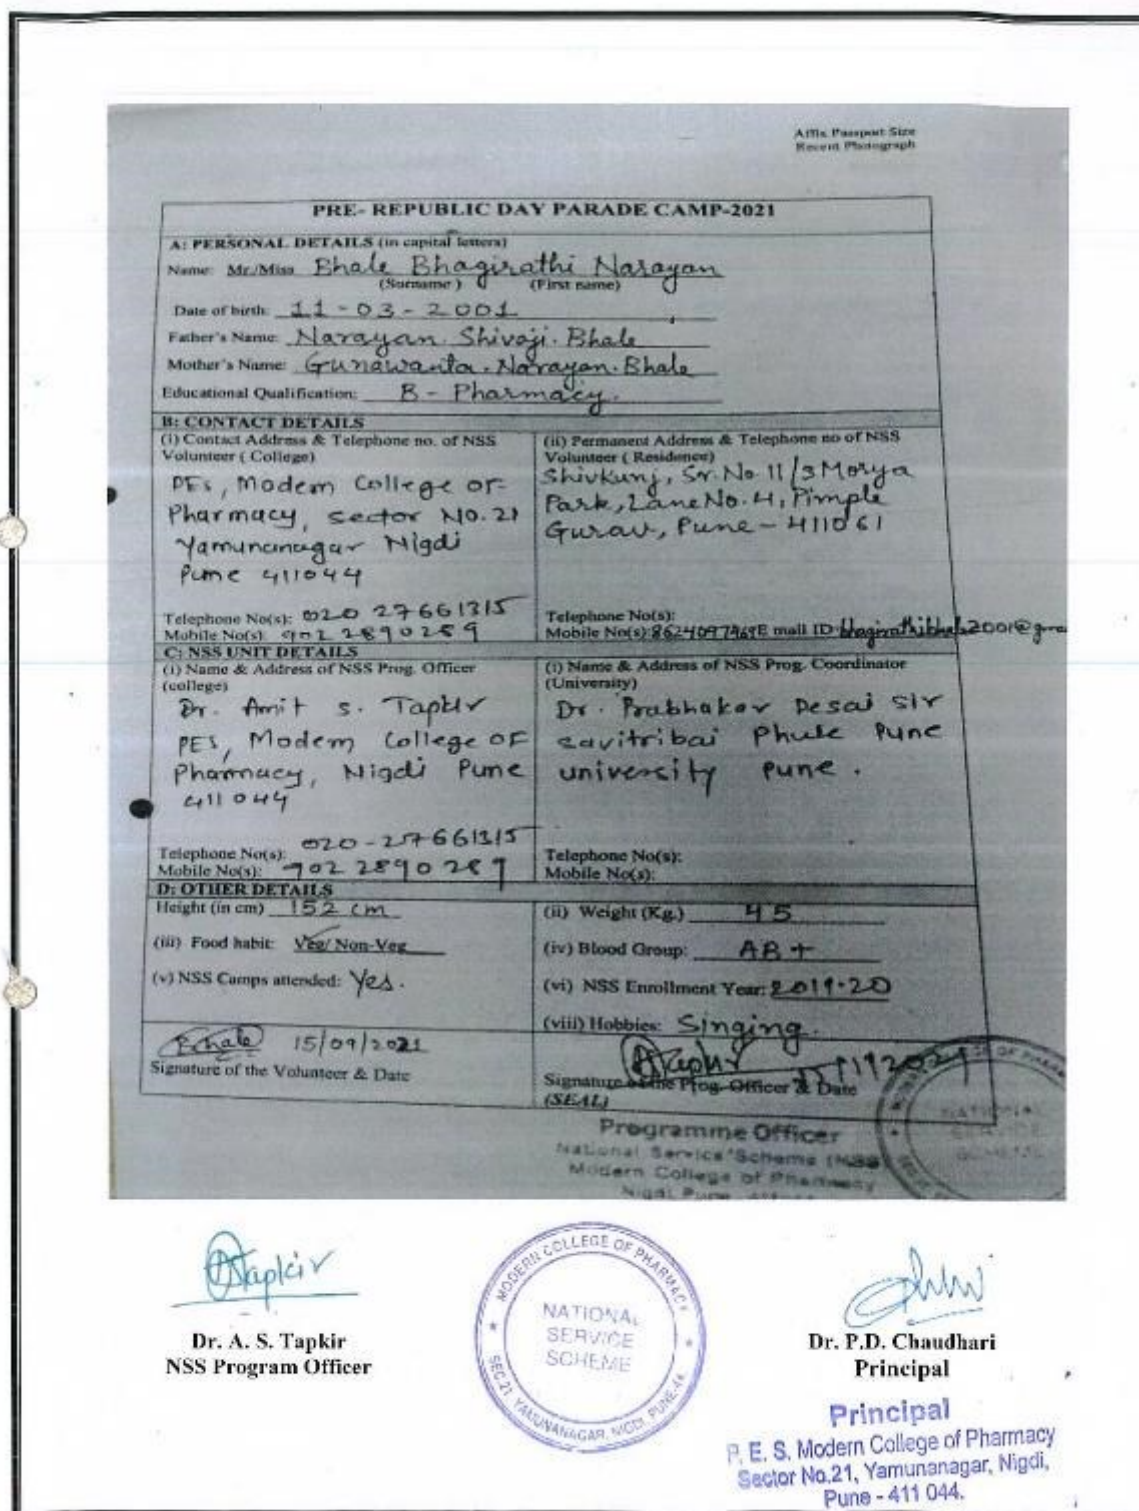 Affix Passport Size
Recent Photograph
PRE- REPUBLIC DAY PARADE CAMP-2021
A: PERSONAL DETAILS (in capital letters)
Name: Mr./Miss Bhale Bhagirathi Narayan
(Surname ) (First name)
Date of birth: 11-03-2001
Father's Name: Narayan. Shivaji. Bhale
Mother's Name: Gunawanta. Narayan. Bhale
Educational Qualification: B - Pharmacy.
B: CONTACT DETAILS
(i) Contact Address & Telephone no. of NSS
Volunteer ( College)
PEs, Modern College OF
Pharmacy, sector NO.21
Yamunanagar Nigdi
Pune 411044
Telephone No(s): 020 27661315
Mobile No(s): 9022890289
(ii) Permanent Address & Telephone no of NSS
Volunteer ( Residence)
Shivkunj, Sr. No. 11/3 Morya
Park, Lane No. 4, Pimple
Gurav, Pune - 411061
Telephone No(s):
Mobile No(s): E mail ID:
C: NSS UNIT DETAILS
(i) Name & Address of NSS Prog. Officer
(college)
Dr. Amit S. Tapkir
PES, Modern College OF
Pharmacy, Nigdi Pune
411044
Telephone No(s): 020-27661315
Mobile No(s): 9022890289
(i) Name & Address of NSS Prog. Coordinator
(University)
Dr. Prabhakar Desai sir
savitribai Phule Pune
university Pune.
Telephone No(s):
Mobile No(s):
D: OTHER DETAILS
Height (in cm) 152 cm
(ii) Weight (Kg.) 45
(iii) Food habit: Veg/ Non-Veg
(iv) Blood Group: AB+
(v) NSS Camps attended: Yes.
(vi) NSS Enrollment Year: 2019-20
(viii) Hobbies: Singing.
Bhale 15/09/2021
Signature of the Volunteer & Date
Tapkir
Signature of the Prog. Officer & Date
(SEAL)
Programme Officer
National Service Scheme (NSS)
Modern College of Pharmacy
Nigdi, Pune
NATIONAL
SERVICE
SCHEME
Tapkir
Dr. A. S. Tapkir
NSS Program Officer
MODERN COLLEGE OF PHARMACY
NATIONAL
SERVICE
SCHEME
SEC.21, YAMUNANAGAR, NIGDI, PUNE-44.
Dr. P.D. Chaudhari
Principal
Principal
P. E. S. Modern College of Pharmacy
Sector No.21, Yamunanagar, Nigdi,
Pune - 411 044.